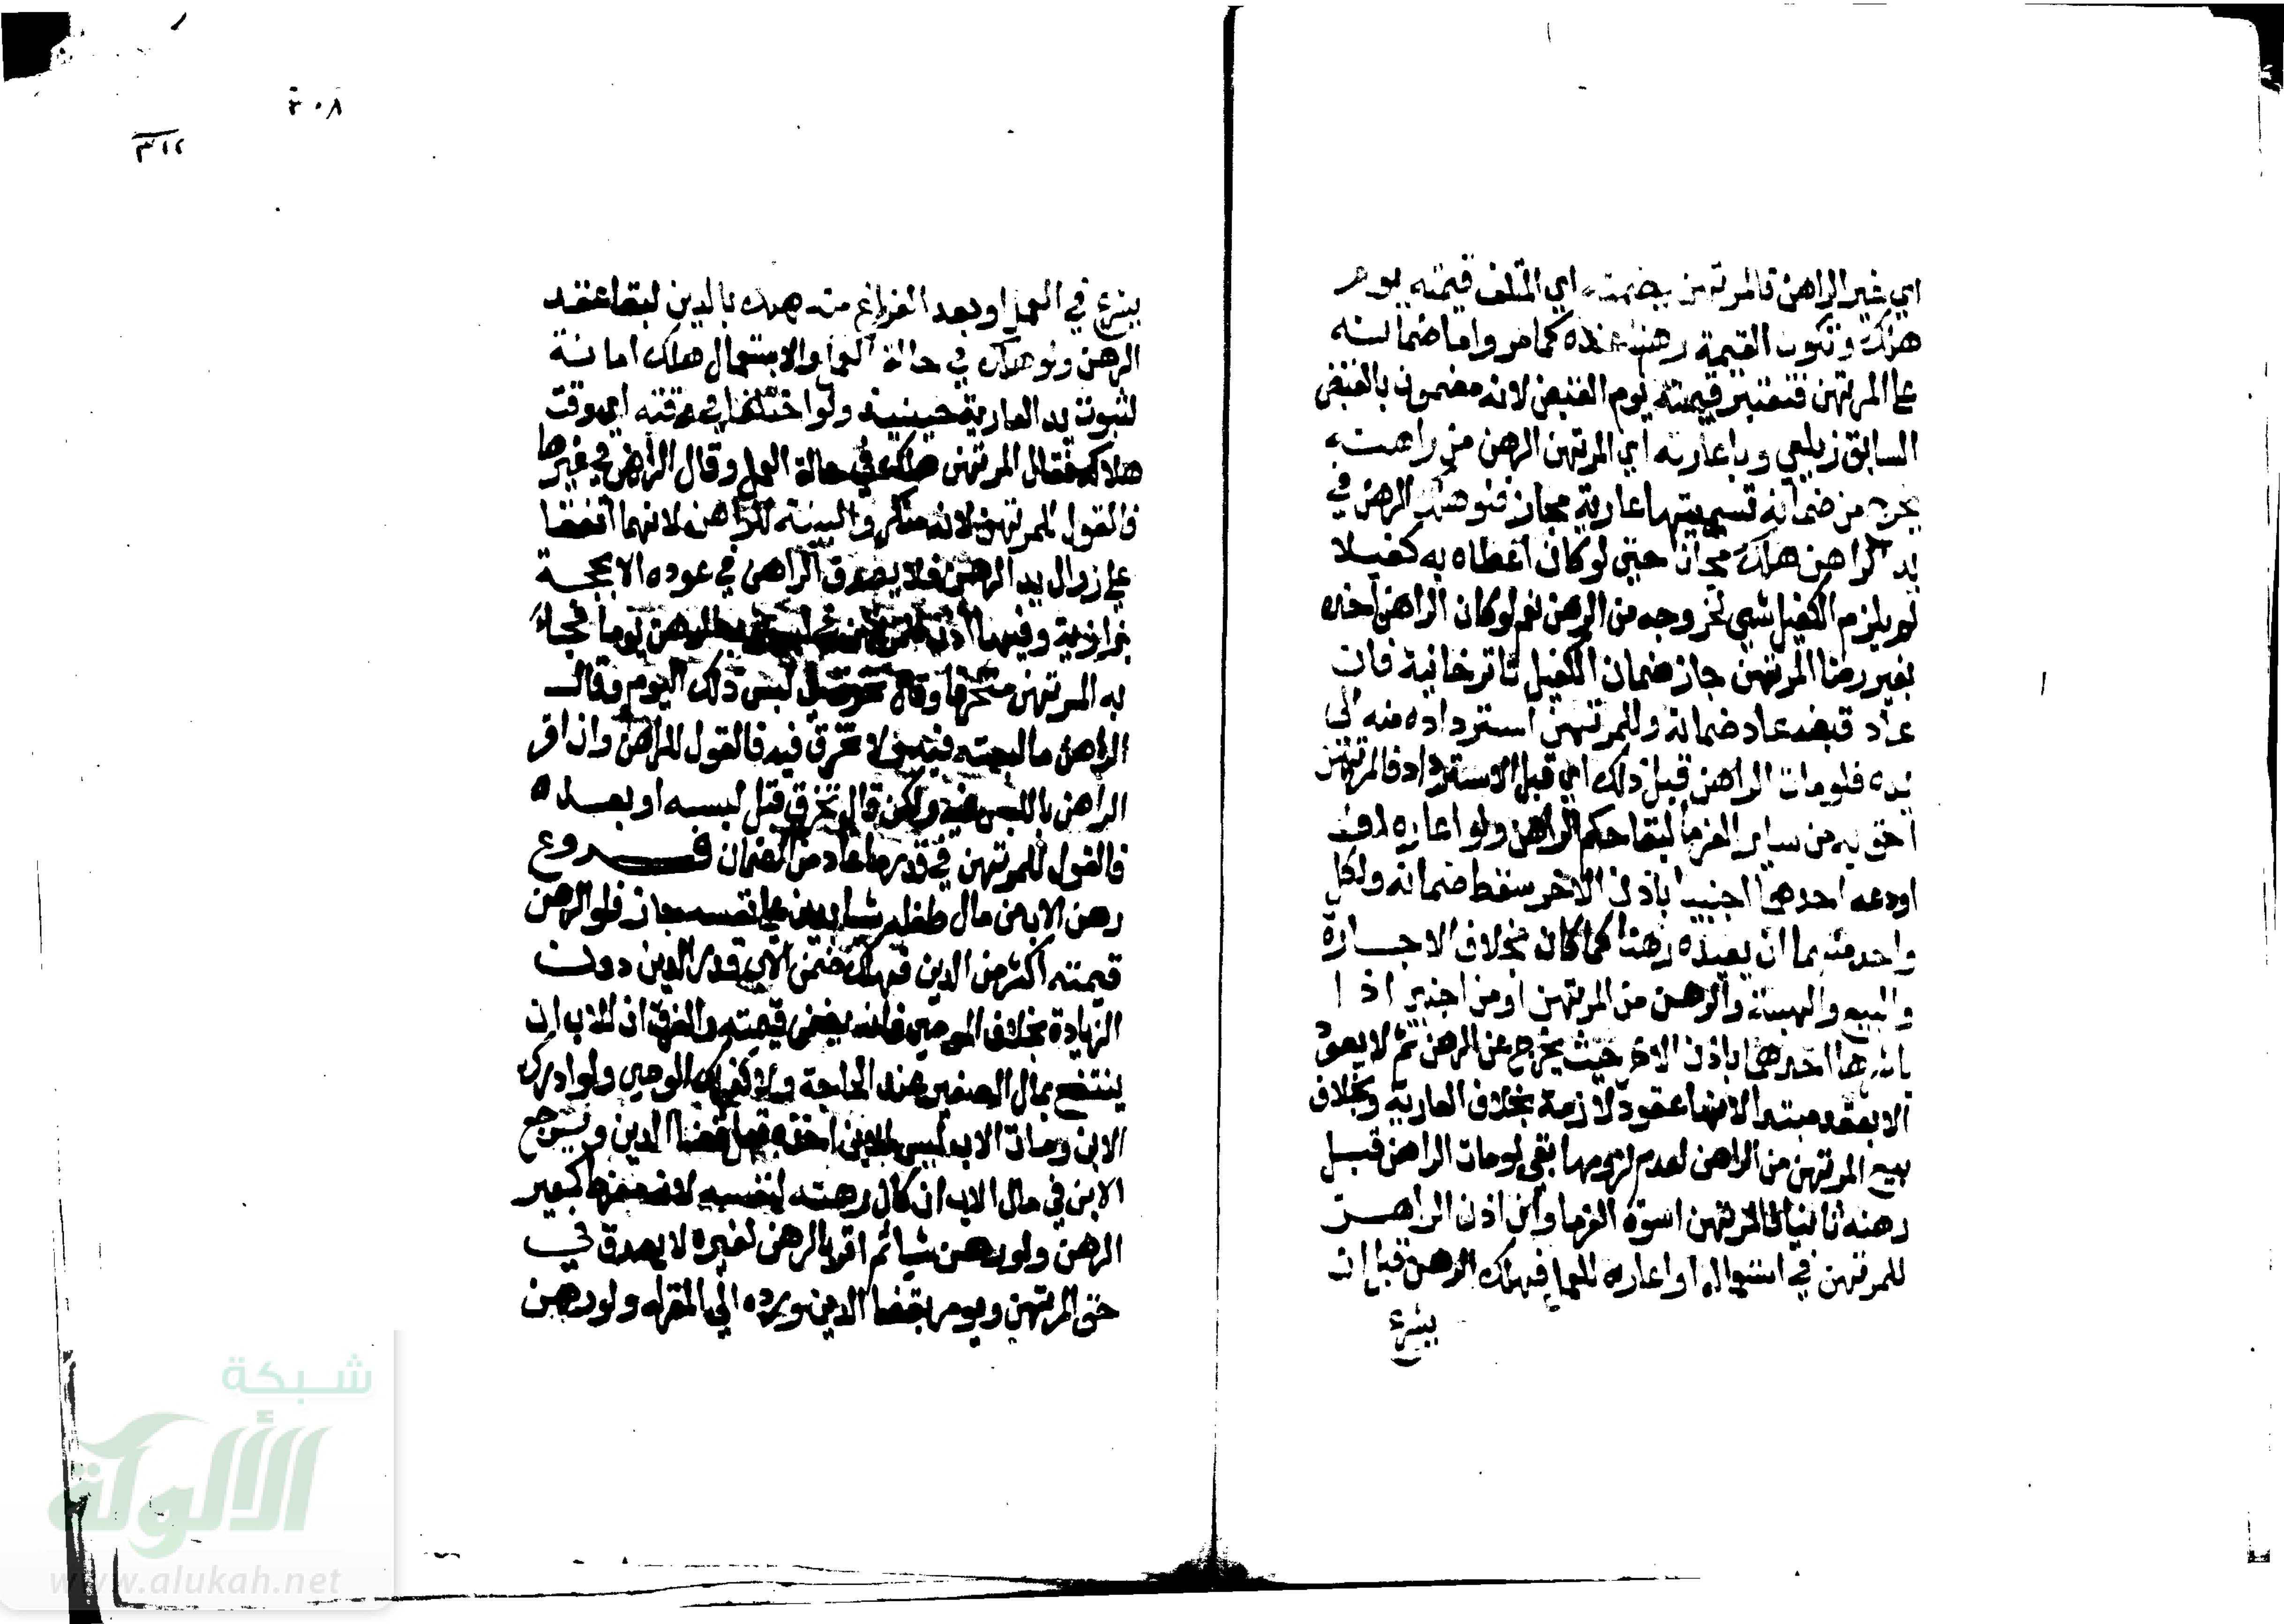 اي غير الراهن فالمرتهن يضمنه اي المتلف قيمته يوم
هلك وتكون القيمة رهنا عنده كما مر واما ضمانه
على المرتهن فتعتبر قيمته يوم القبض لانه مضمون بالقبض
السابق زيلعي وباعارته اي المرتهن الرهن من راهنه
يخرج من ضمانه تسميتها عارية مجاز فلو هلك الرهن في
يد الراهن هلك مجانا حتى لو كان اعطاه به كفيلا
لم يلزم الكفيل شي لخروجه من الرهن نعم لو كان الراهن اخذه
بغير رضا المرتهن جاز ضمان الكفيل تاترخانية فان
عاد قبضه عاد ضمانه وللمرتهن استرداده منه الى
يده فلو مات الراهن قبل ذلك اي قبل الاسترداد فالمرتهن
احق به من ساير الغرما لبقا حكم الرهن ولو اعاره او
اودعه احدهما اجنبيا باذن الاخر سقط ضمانه ولكل
واحد منهما ان يعيده رهنا كما كان بخلاف الاجارة
والبيع والهبة والرهن من المرتهن او من اجنبي اذا
باشرها احدهما باذن الاخر حيث يخرج عن الرهن ثم لا يعود
الا بعقد مبتدا لانها عقود لازمة بخلاف العارية وبخلاف
بيع المرتهن من الراهن لعدم لزومها بقي لو مات الراهن قبل
رهنه ثانيا فالمرتهن اسوة الغرما وان اذن الراهن
للمرتهن في استعماله او اعاره للعمل فهلك الرهن قبل ان
يشرع
٣٠٨
٣١٢
يشرع في العمل او بعد الفراغ منه هلك بالدين لبقا عقد
الرهن ولو هلك في حالة العمل والاستعمال هلك امانة
لثبوت يد العارية حينيذ ولو اختلفا في وقته اي وقت
هلاكه فقال المرتهن هلك في حالة العمل وقال الراهن في غيرها
فالقول للمرتهن لانه منكر والبينة للراهن لانهما اتفقا
على زوال يد الرهن فلا يصدق الراهن في عوده الا بحجة
بزازية وفيها اذن للمرتهن في لبس ثوب الرهن يوما فجاء
به المرتهن متخرقا وقال تخرق في لبس ذلك اليوم وقال
الراهن ما لبسته فيه ولا تخرق فيه فالقول للراهن وان اقر
الراهن باللبس فيه ولكن قال تخرق قبل لبسه او بعده
فالقول للمرتهن في قدر ما عاد من الضمان فروع
رهن الاب من مال طفله شيا بدين على نفسه جاز فلو الرهن
قيمته اكثر من الدين فهلك ضمن الاب قدر الدين دون
الزيادة بخلاف الوصي فانه يضمن قيمته والفرق ان للاب ان
ينتفع بمال الصغير عند الحاجة ولا كذلك الوصي ولو ادرك
الابن ومات الاب ليس للابن اخذه قبل قضا الدين ويرجع
الابن في مال الاب ان كان رهنه لنفسه لانه كمعير
الرهن ولو رهن شيا ثم اقر بالرهن لغيره لا يصدق في
حق المرتهن ويومر بقضا الدين ورده الى المقر له ولو رهن
شبكة
الألوكة
www.alukah.net